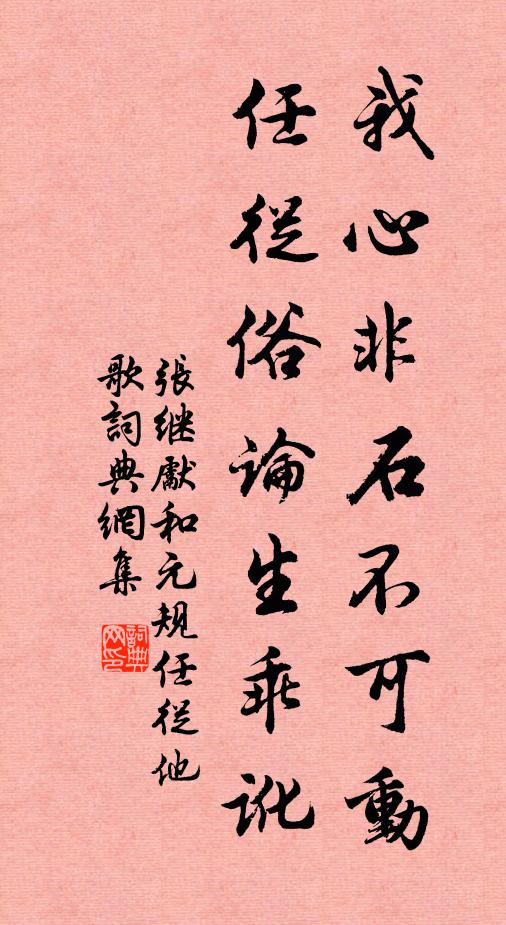 我心非石不可動
任從俗論生乖訛
張继獻和元規任從他
歌詞典網集
詞典網印